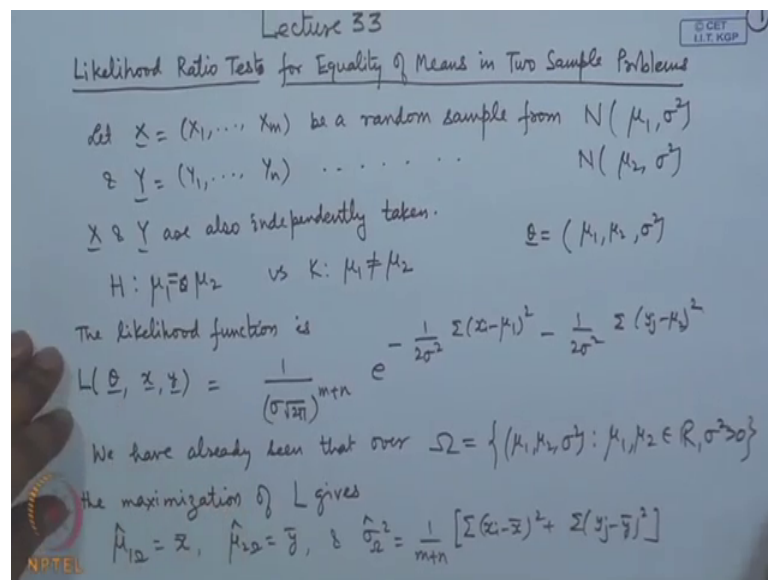 Lecture 33
© CET
I.I.T. KGP
1
Likelihood Ratio Tests for Equality of Means in Two Sample Problems
Let X = (X₁,..., Xₘ) be a random sample from N(μ₁, σ²)
& Y = (Y₁,..., Yₙ) . . . . . . . N(μ₂, σ²)
X & Y are also independently taken.
θ = (μ₁, μ₂, σ²)
H: μ₁ = μ₂ vs K: μ₁ ≠ μ₂
The likelihood function is
L(θ, x, y) = 1/(σ√2π)^(m+n) e^(- 1/(2σ²) Σ(xᵢ-μ₁)² - 1/(2σ²) Σ(yⱼ-μ₂)²)
We have already seen that over Ω = {(μ₁, μ₂, σ²) : μ₁, μ₂ ∈ ℝ, σ²>0}
the maximization of L gives
μ̂₁Ω = x̄, μ̂₂Ω = ȳ, & σ̂²Ω = 1/(m+n) [Σ(xᵢ-x̄)² + Σ(yⱼ-ȳ)²]
NPTEL